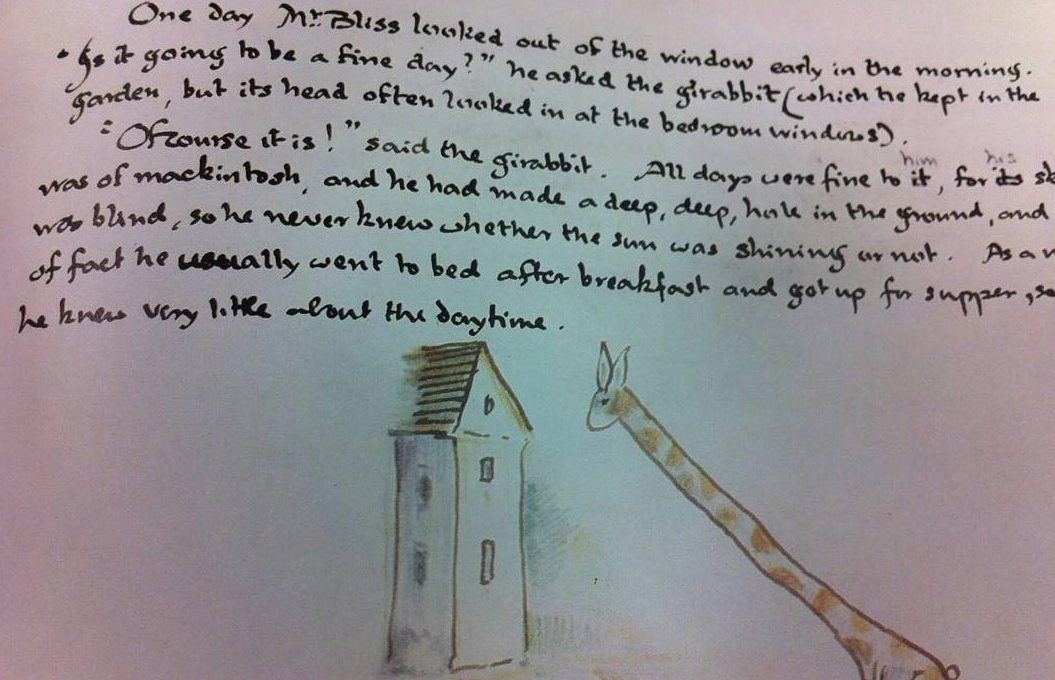 One day Mr. Bliss looked out of the window early in the morning.
"Is it going to be a fine day?" he asked the girabbit (which he kept in the
garden, but its head often looked in at the bedroom windows).
"Of course it is!" said the girabbit. All days were fine to it, for its
him his
was of mackintosh, and he had made a deep, deep, hole in the ground, and
was blind, so he never knew whether the sun was shining or not. As a
of fact he usually went to bed after breakfast and got up for supper, so
he knew very little about the daytime.